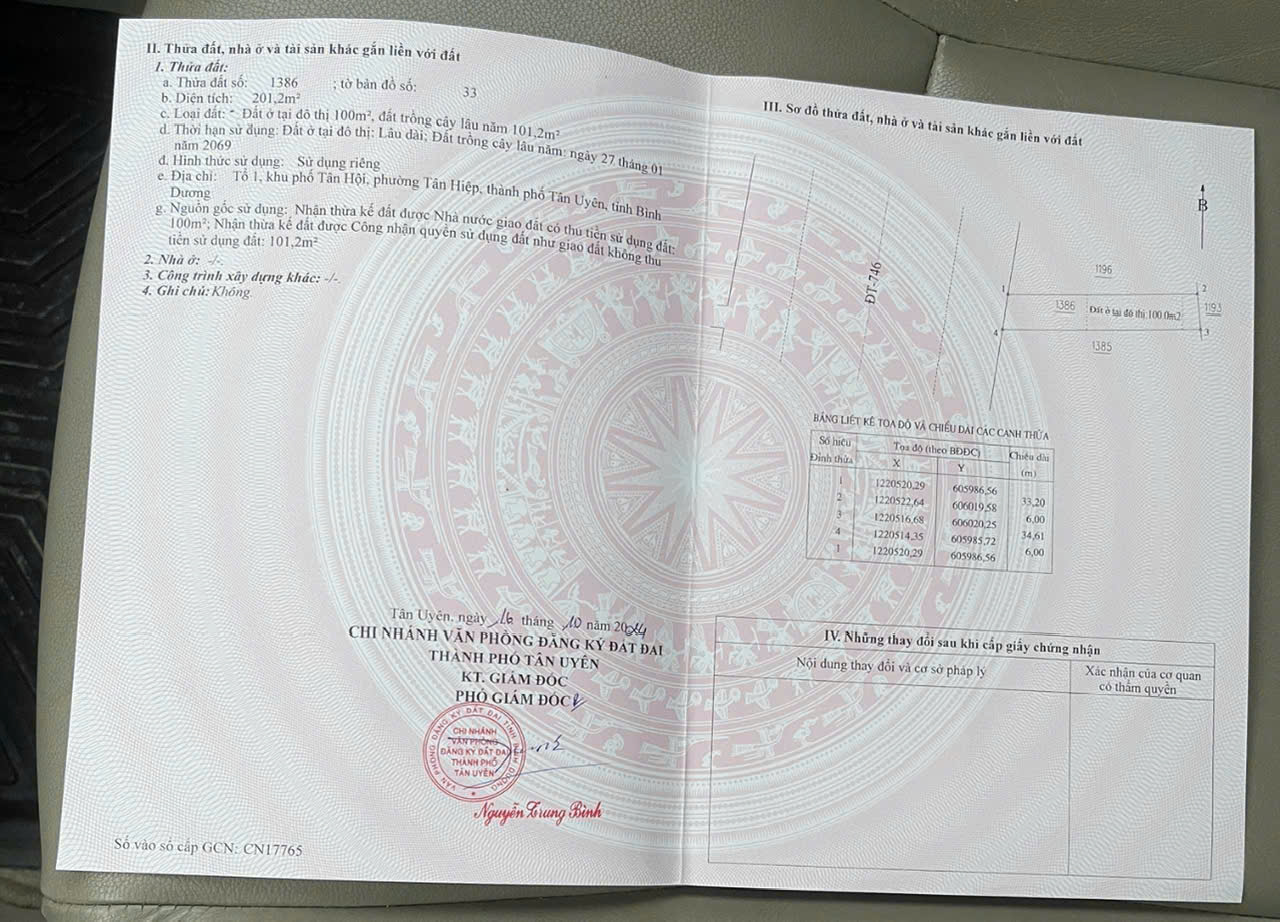 II. Thửa đất, nhà ở và tài sản khác gắn liền với đất
1. Thửa đất:
a. Thửa đất số: 1386 ; tờ bản đồ số: 33
b. Diện tích: 201,2m²
c. Loại đất: Đất ở tại đô thị 100m², đất trồng cây lâu năm 101,2m²
d. Thời hạn sử dụng: Đất ở tại đô thị: Lâu dài; Đất trồng cây lâu năm: ngày 27 tháng 01
năm 2069
đ. Hình thức sử dụng: Sử dụng riêng
e. Địa chỉ: Tổ 1, khu phố Tân Hội, phường Tân Hiệp, thành phố Tân Uyên, tỉnh Bình
Dương
g. Nguồn gốc sử dụng: Nhận thừa kế đất được Nhà nước giao đất có thu tiền sử dụng đất:
100m²; Nhận thừa kế đất được Công nhận quyền sử dụng đất như giao đất không thu
tiền sử dụng đất: 101,2m²
2. Nhà ở: -/-.
3. Công trình xây dựng khác: -/-.
4. Ghi chú: Không.
Tân Uyên, ngày 16 tháng 10 năm 2024
CHI NHÁNH VĂN PHÒNG ĐĂNG KÝ ĐẤT ĐAI
THÀNH PHỐ TÂN UYÊN
KT. GIÁM ĐỐC
PHÓ GIÁM ĐỐC
VĂN PHÒNG ĐĂNG KÝ ĐẤT ĐAI TỈNH BÌNH DƯƠNG
CHI NHÁNH
VĂN PHÒNG
ĐĂNG KÝ ĐẤT ĐAI
THÀNH PHỐ
TÂN UYÊN
Nguyễn Trung Bình
Số vào sổ cấp GCN: CN17765
III. Sơ đồ thửa đất, nhà ở và tài sản khác gắn liền với đất
B
ĐT-746
1196
1 2
1386 Đất ở tại đô thị 100.0m2 1193
4 3
1385
BẢNG LIỆT KÊ TỌA ĐỘ VÀ CHIỀU DÀI CÁC CẠNH THỬA
Số hiệu Đỉnh thửa Tọa độ (theo BĐĐC) Chiều dài (m)
X Y
1 1220520,29 605986,56
33,20
2 1220522,64 606019,58
6,00
3 1220516,68 606020,25
34,61
4 1220514,35 605985,72
6,00
1 1220520,29 605986,56
IV. Những thay đổi sau khi cấp giấy chứng nhận
Nội dung thay đổi và cơ sở pháp lý Xác nhận của cơ quan
có thẩm quyền